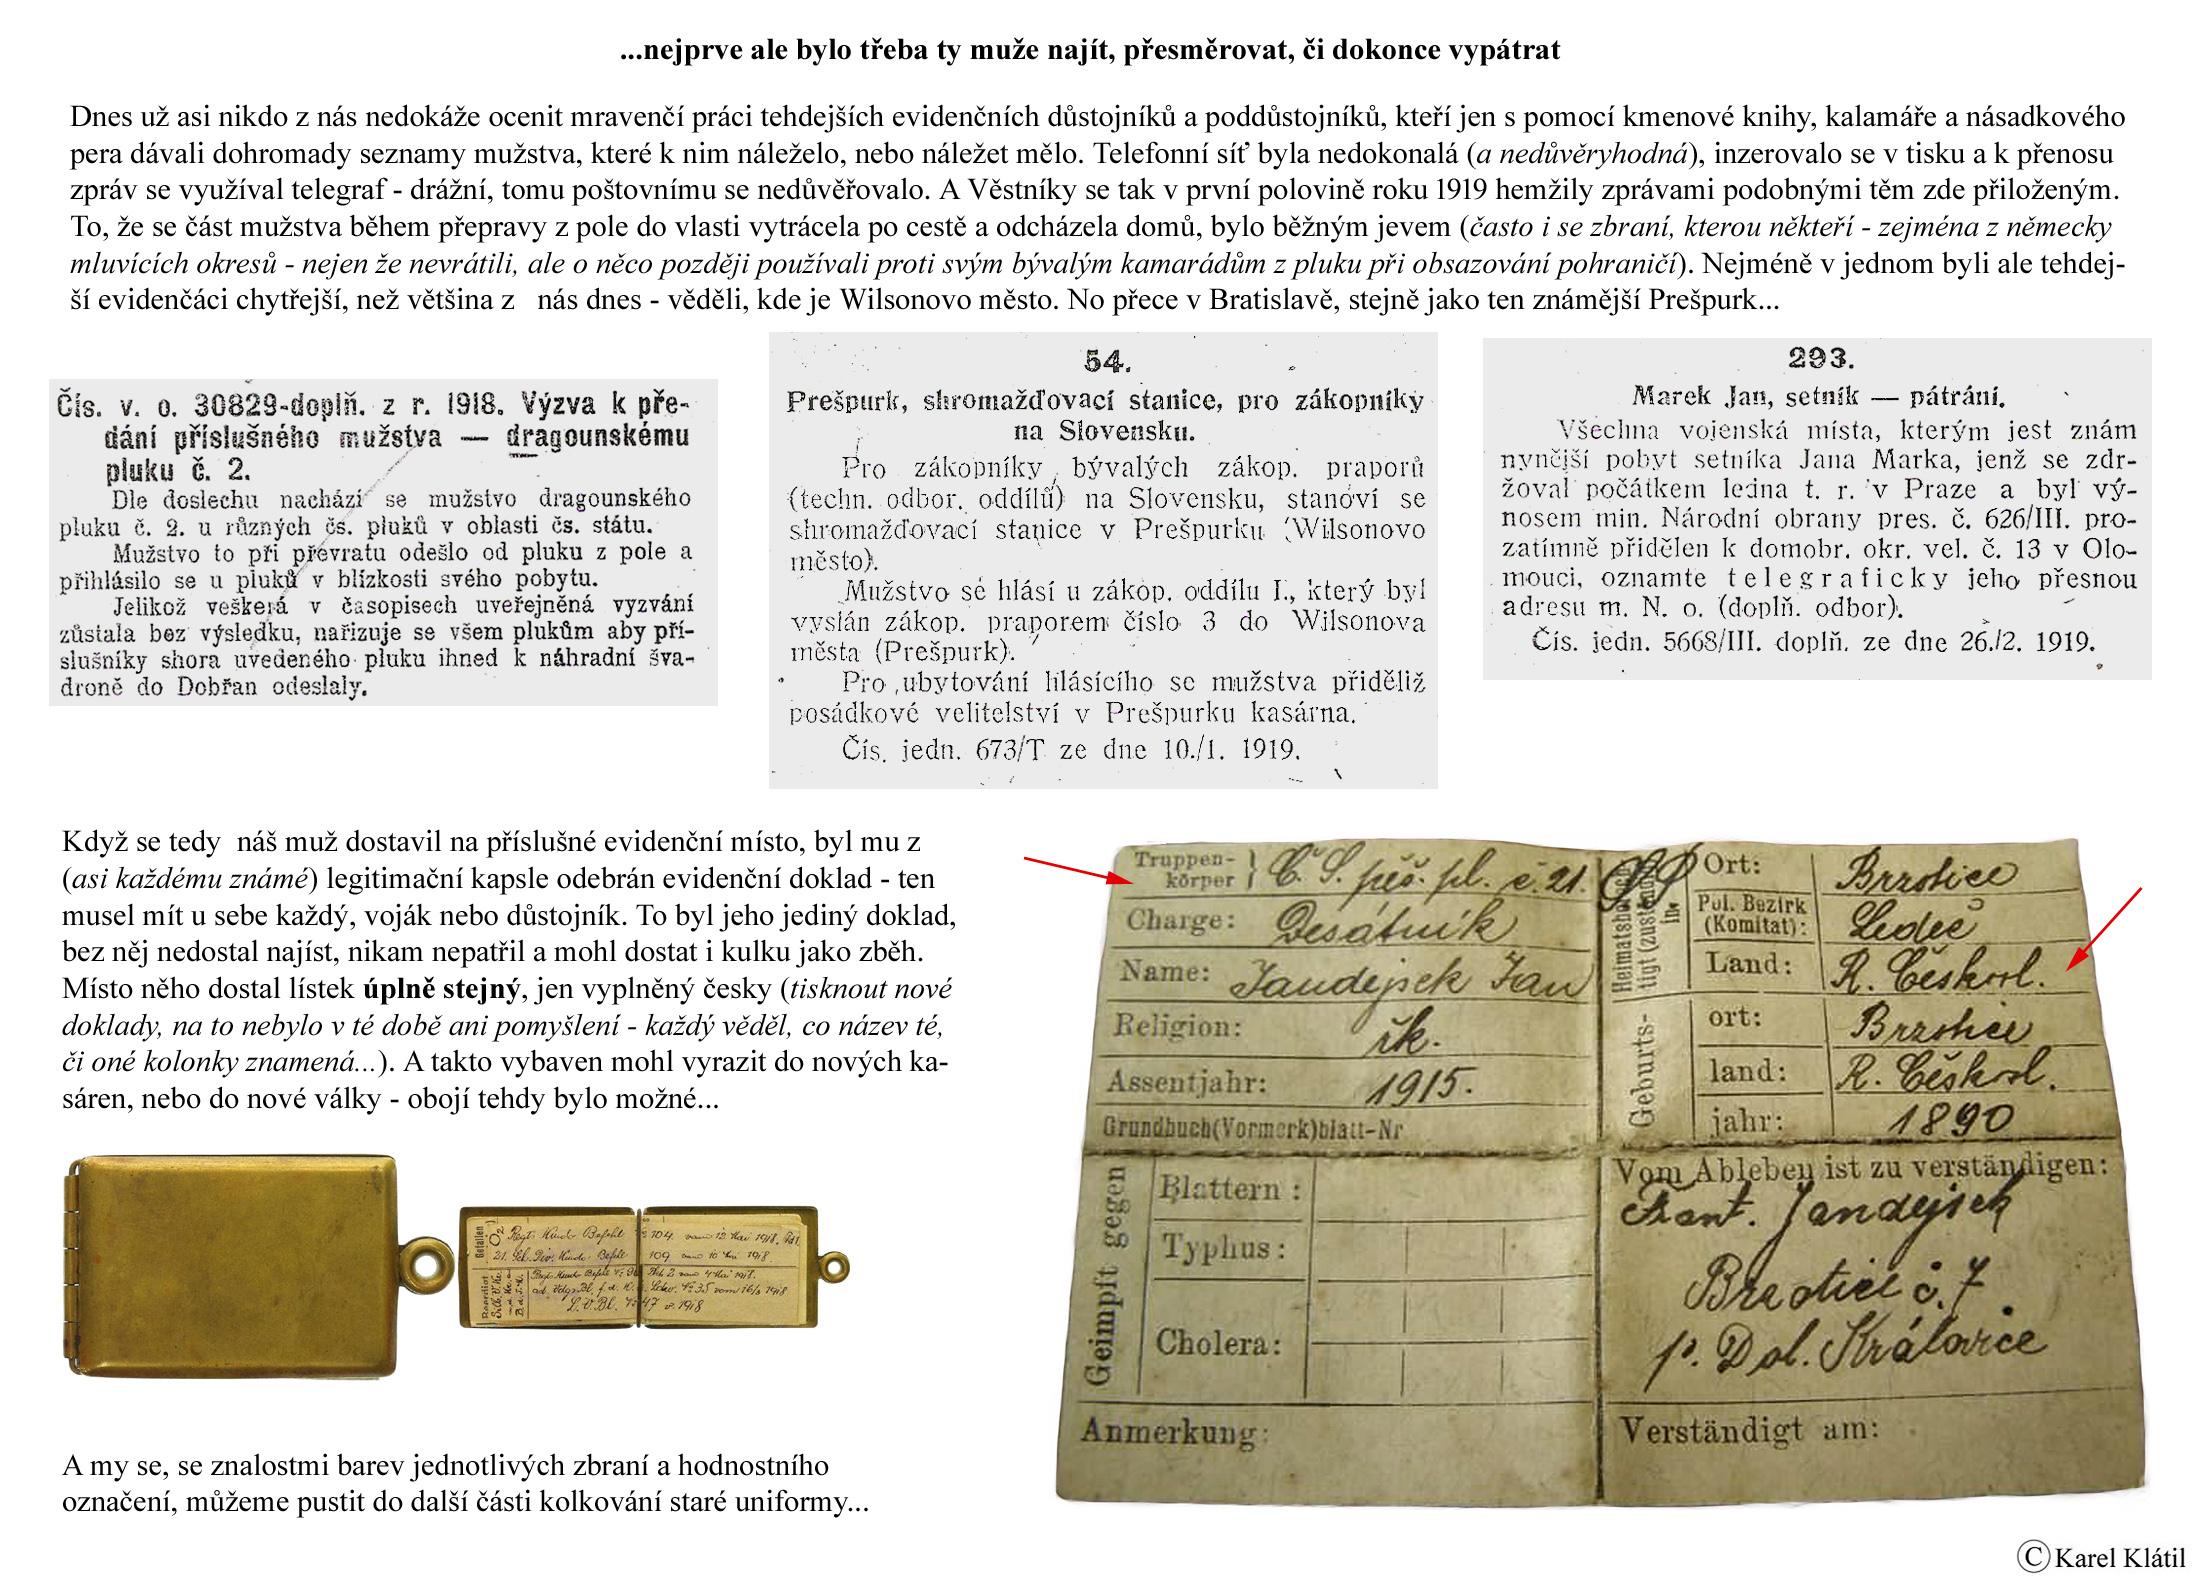 ...nejprve ale bylo třeba ty muže najít, přesměrovat, či dokonce vypátrat
Dnes už asi nikdo z nás nedokáže ocenit mravenčí práci tehdejších evidenčních důstojníků a poddůstojníků, kteří jen s pomocí kmenové knihy, kalamáře a násadkového
pera dávali dohromady seznamy mužstva, které k nim náleželo, nebo náležet mělo. Telefonní síť byla nedokonalá (a nedůvěryhodná), inzerovalo se v tisku a k přenosu
zpráv se využíval telegraf - drážní, tomu poštovnímu se nedůvěřovalo. A Věstníky se tak v první polovině roku 1919 hemžily zprávami podobnými těm zde přiloženým.
To, že se část mužstva během přepravy z pole do vlasti vytrácela po cestě a odcházela domů, bylo běžným jevem (často i se zbraní, kterou někteří - zejména z německy
mluvících okresů - nejen že nevrátili, ale o něco později používali proti svým bývalým kamarádům z pluku při obsazování pohraničí). Nejméně v jednom byli ale tehdej-
ší evidenčáci chytřejší, než většina z nás dnes - věděli, kde je Wilsonovo město. No přece v Bratislavě, stejně jako ten známější Prešpurk...
Čís. v. o. 30829-doplň. z r. 1918. Výzva k pře-
dání příslušného mužstva — dragounskému
pluku č. 2.
Dle doslechu nachází se mužstvo dragounského
pluku č. 2. u různých čs. pluků v oblasti čs. státu.
Mužstvo to při převratu odešlo od pluku z pole a
přihlásilo se u pluků v blízkosti svého pobytu.
Jelikož veškerá v časopisech uveřejněná vyzvání
zůstala bez výsledku, nařizuje se všem plukům aby pří-
slušníky shora uvedeného pluku ihned k náhradní šva-
droně do Dobřan odeslaly.
54.
Prešpurk, shromažďovací stanice, pro zákopníky
na Slovensku.
Pro zákopníky bývalých zákop. praporů
(techn. odbor. oddílů) na Slovensku, stanoví se
shromažďovací stanice v Prešpurku (Wilsonovo
město).
Mužstvo se hlásí u zákop. oddílu I., který byl
vyslán zákop. praporem číslo 3 do Wilsonova
města (Prešpurk).
Pro ubytování hlásícího se mužstva přiděliž
posádkové velitelství v Prešpurku kasárna.
Čís. jedn. 673/T ze dne 10./1. 1919.
293.
Marek Jan, setník — pátrání.
Všechna vojenská místa, kterým jest znám
nynější pobyt setníka Jana Marka, jenž se zdr-
žoval počátkem ledna t. r. v Praze a byl vý-
nosem min. Národní obrany pres. č. 626/III. pro-
zatímně přidělen k domobr. okr. vel. č. 13 v Olo-
mouci, oznamte telegraficky jeho přesnou
adresu m. N. o. (doplň. odbor).
Čís. jedn. 5668/III. doplň. ze dne 26./2. 1919.
Když se tedy náš muž dostavil na příslušné evidenční místo, byl mu z
(asi každému známé) legitimační kapsle odebrán evidenční doklad - ten
musel mít u sebe každý, voják nebo důstojník. To byl jeho jediný doklad,
bez něj nedostal najíst, nikam nepatřil a mohl dostat i kulku jako zběh.
Místo něho dostal lístek úplně stejný, jen vyplněný česky (tisknout nové
doklady, na to nebylo v té době ani pomyšlení - každý věděl, co název té,
či oné kolonky znamená...). A takto vybaven mohl vyrazit do nových ka-
sáren, nebo do nové války - obojí tehdy bylo možné...
Truppen-
körper Č. S. pěš. pl. č. 21.
Charge: Desátník
Name: Jandejsek Jan
Religion: řk.
Assentjahr: 1915.
Grundbuch(Vormerk)blatt-Nr
Geimpft gegen
Blattern:
Typhus:
Cholera:
Anmerkung:
Ort: Brzotice
Pol. Bezirk
(Komitat): Ledeč
Land: R. Českosl.
Geburts-
ort: Brzotice
land: R. Českosl.
jahr: 1890
Vom Ableben ist zu verständigen:
Frant. Jandejsek
Brzotice č. 7
p. Dol. Královice
Verständigt am:
A my se, se znalostmi barev jednotlivých zbraní a hodnostního
označení, můžeme pustit do další části kolkování staré uniformy...
© Karel Klátil